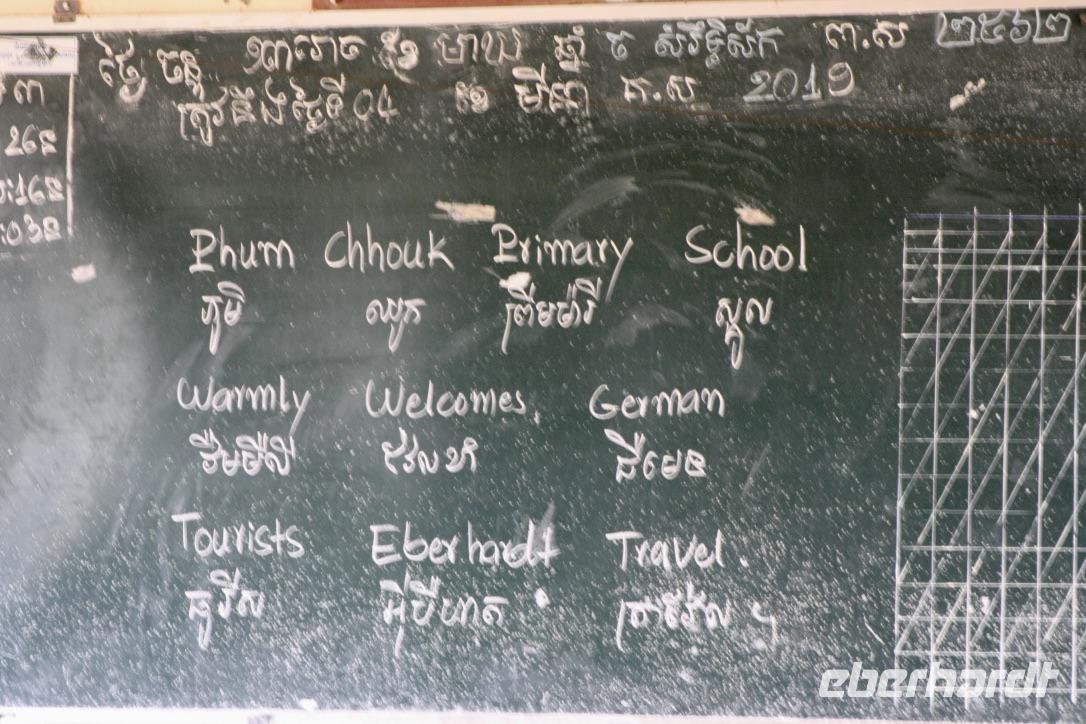 ថ្ងៃ ចន្ទ ១៣រោច ខែ មាឃ ឆ្នាំ ច សំរឹទ្ធិស័ក ព.ស ២៥៦២
ត្រូវនឹងថ្ងៃទី 04 ខែ មីនា គ.ស 2019
៣
26ន
16ន
03ន
Phum Chhouk Primary School
ភូមិ ឈូក ព្រីមម៉ារី ស្គូល
Warmly Welcomes German
វ៉មលី វែលខាំ ជឺមេន
Tourists Eberhardt Travel.
ធូរីស អ៊ីប៊ើហាត ត្រាវែល ។
eberhardt